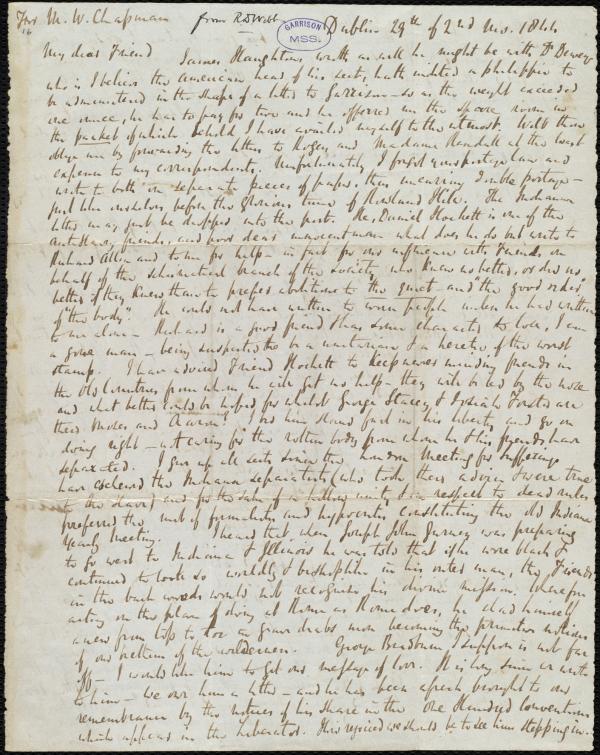 For M. W. Chapman from R D Webb
16
GARRISON MSS.
Dublin 29th of 2nd Mo. 1844
My dear Friend James Haughton wroth as well he might be with Dr Bowly
who is I believe the American head of his sect, hath indited a philippic to
be administered in the shape of a letter to Garrison – so as the weight exceeded
one ounce, he has to pay for two and he offered me the spare room in
the packet of which behold I have availed myself to the utmost. Wilt thou
oblige me by forwarding the letters to Rogers and Madame Kendall at the least
expense to my correspondents. Unfortunately I forgot your postage law and
wrote to both on separate pieces of paper, thus incurring double postage –
just like ourselves before the glorious time of Rowland Hill. The Indiana
letter may just be dropped into the post. He, Daniel Hockett is one of the
antislavery friends, and poor dear innocent man what does he do but write to
Richard Allen and to me for help – in fact for our influence with Friends on
behalf of the schismatical branch of the Society who knew no better, or did no
better if they knew than to prefer abolition to the quiet and the good order
of "the body". He could not have written to worse people unless he had written
to me alone – Richard is a good friend & has some character to lose, I am
a gone man – being suspected to be a unitarian & a heretic of the worst
stamp. I have advised Friend Hockett to keep never minding friends in
the Old Countries from whom he will get no help – they will be led by the nose
and what better could be hoped for whilst George Stacey & Josiah Forster are
their Moses and Aaron! I bid him stand fast in his liberty and go on
doing right – not caring for the rotten body from whom he & his friends have
separated. I give up all sects since the London Meeting for Sufferings
have eschewed the Indiana Separatists (who took their advice & were true
to the slave) and for the sake of a hollow unity, & in respect to dead rules
preferred the mob of formalists and hypocrites constituting the old Indiana
Yearly Meeting. I heard that when Joseph John Gurney was preparing
to go west to Indiana & Illinois he was told that if he wore black &
continued to look so worldly & bishoplike in his outer man, the Friends
in the back woods would not recognise his divine mission. Wherefore
acting on the plan of doing at Rome as Rome does, he clad himself
anew from top to toe in grave drabs more becoming the primitive notions
of our brethren of the wilderness. George Bradburn, I suppose is not far
off – I would like him to get our message of love. It is long since we wrote
to him – we owe him a letter – and he has been afresh brought to our
remembrance by the notices of his share in the One Hundred Conventions
which appear in the Liberator. How rejoiced we should be to see him stepping in –